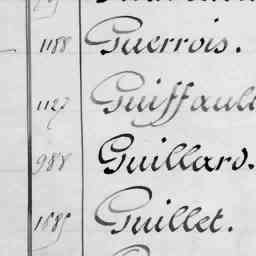 1188 Guerrois.
1127 Guiffault
988 Guillard.
1085 Guillet.